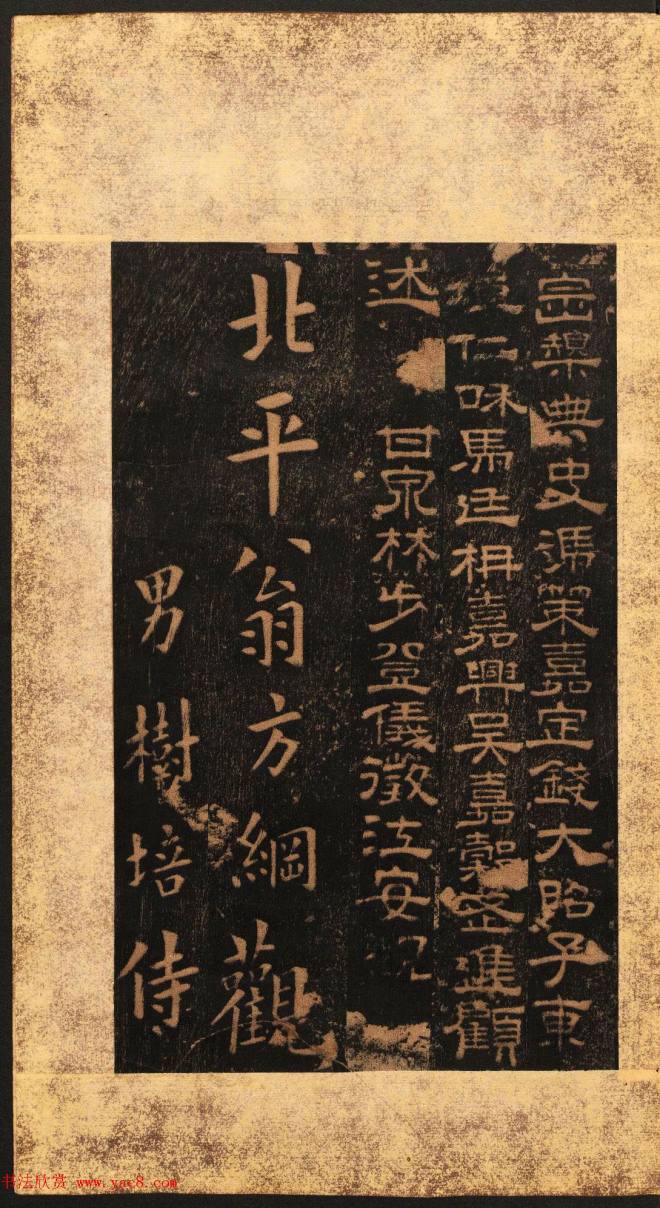 典史馮策嘉定錢大昭子東
仁和馬廷枏嘉興吳嘉穀武進顧
述 甘泉林步登儀徵江安觀
北平翁方綱觀
男樹培侍
书法欣赏 www.yac8.com